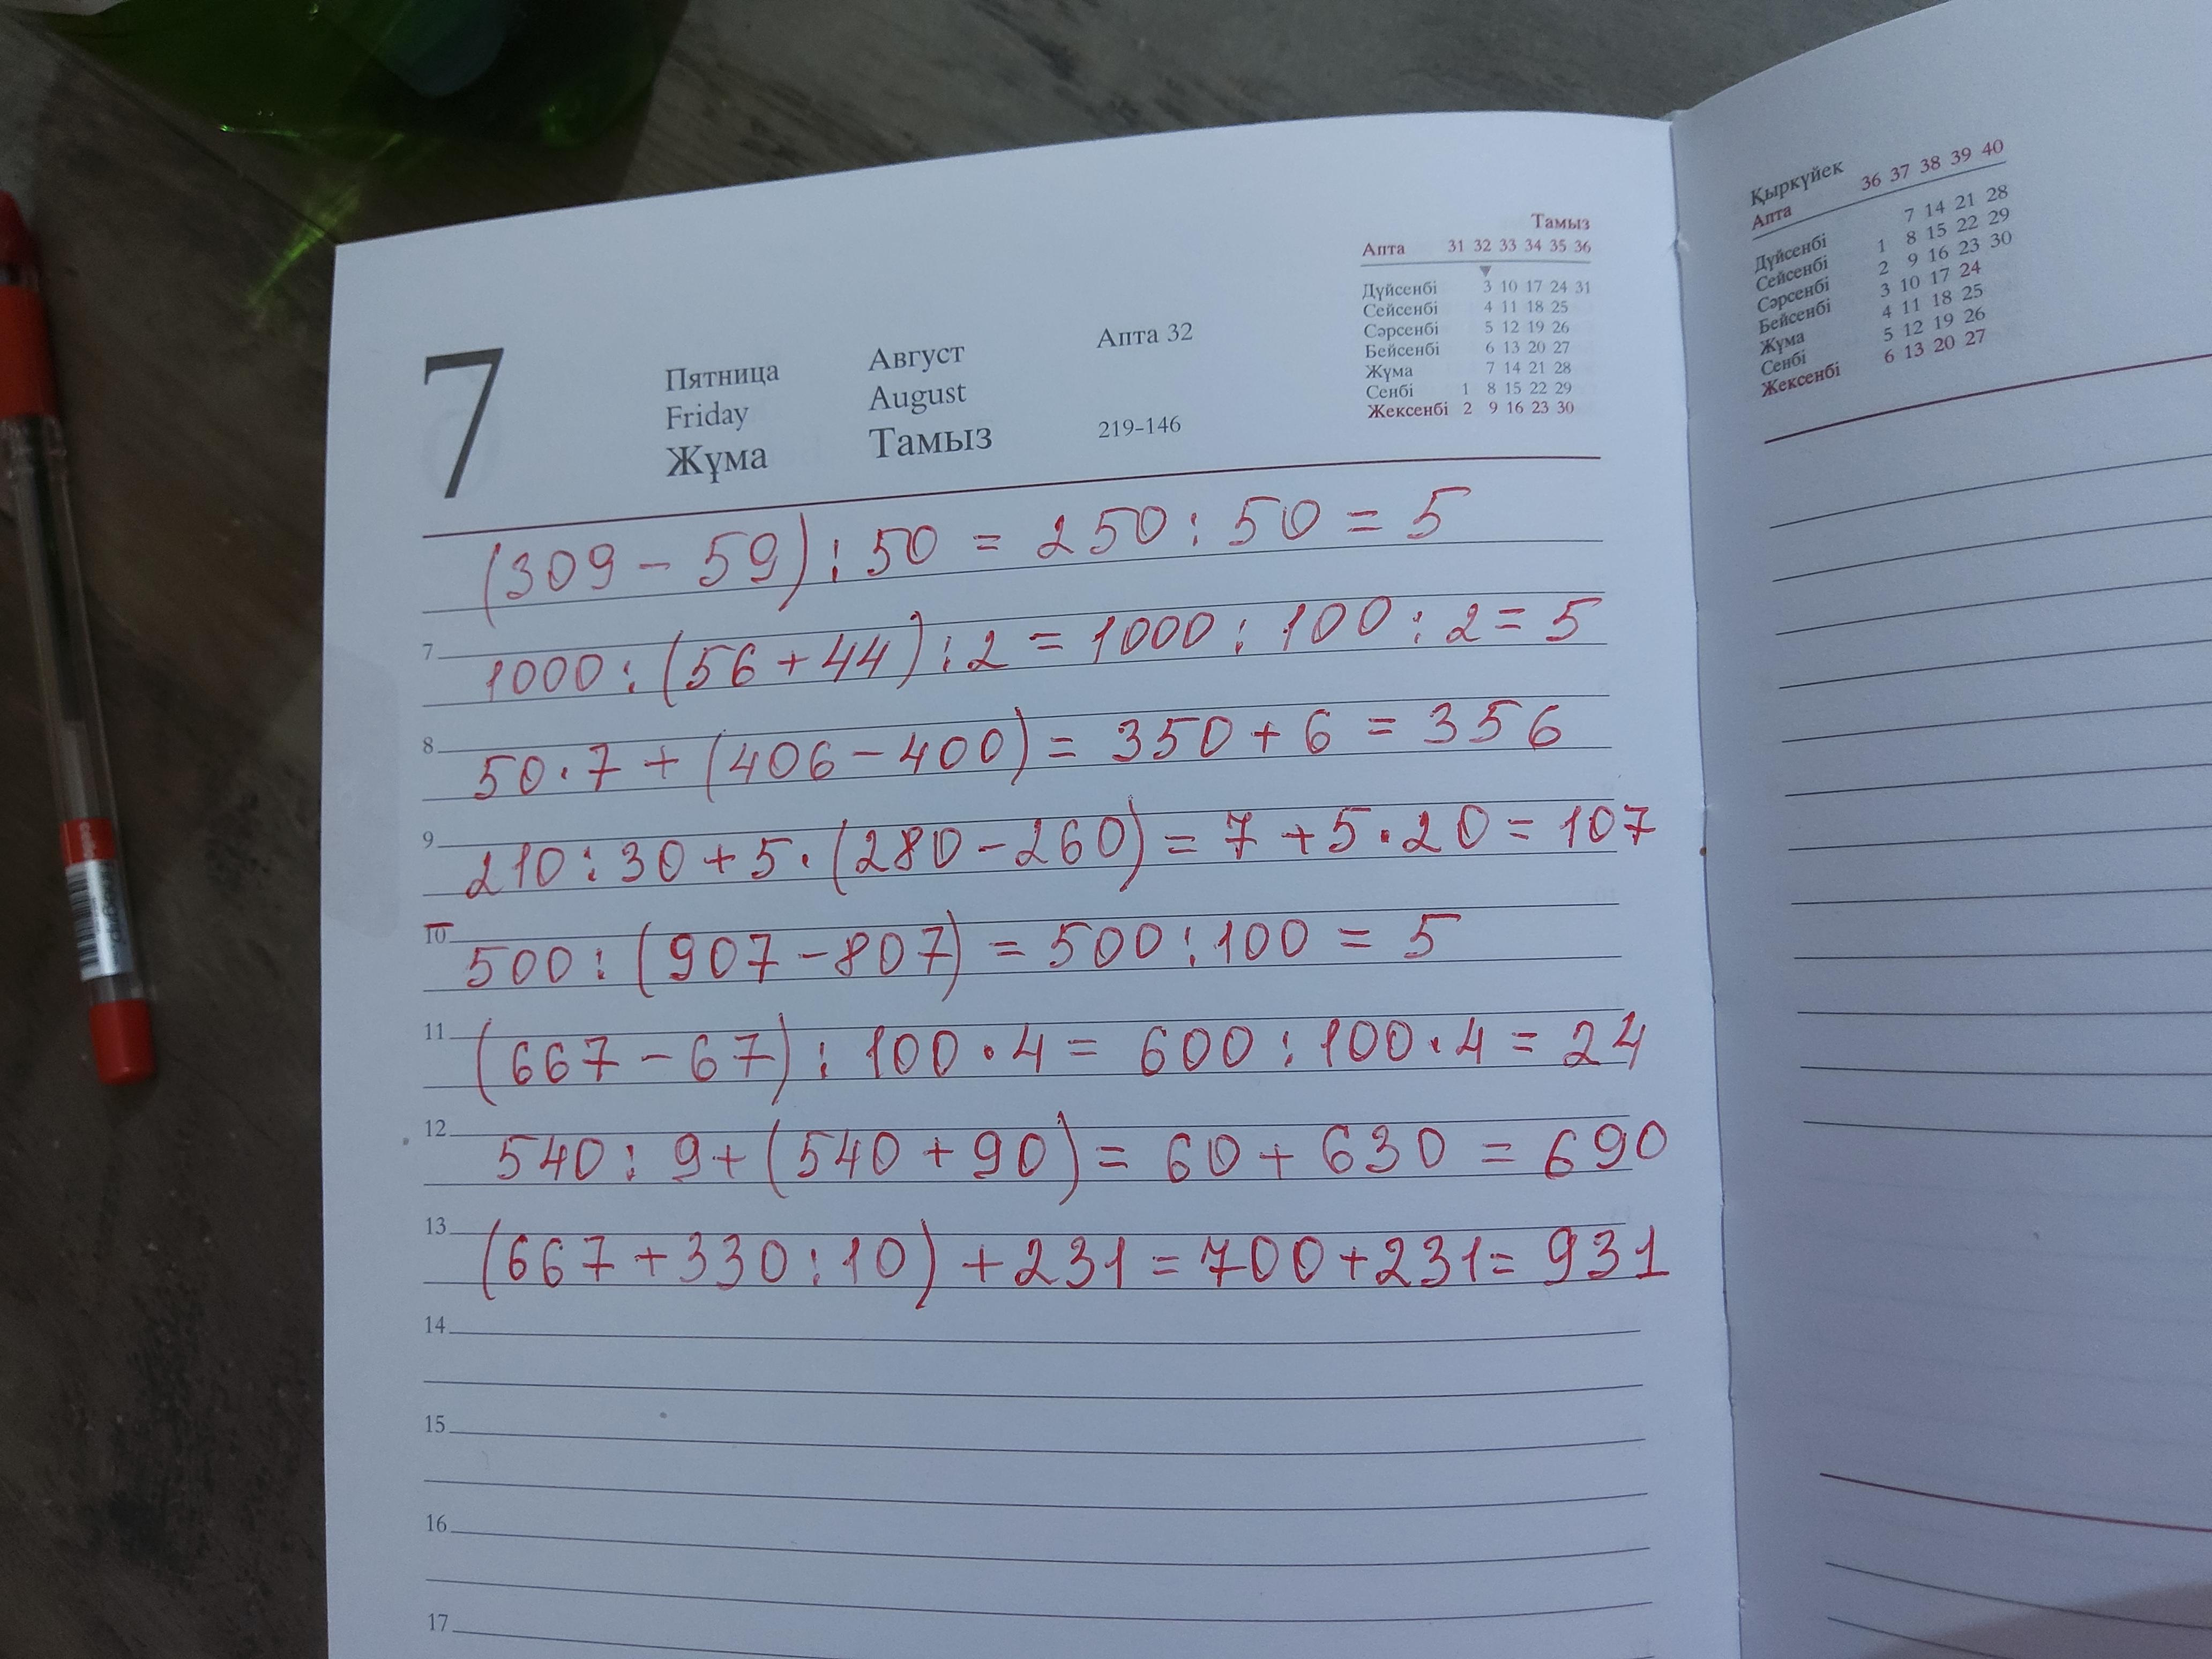 7
Пятница
Friday
Жұма
Август
August
Тамыз
Апта 32
219-146
Тамыз
Апта 31 32 33 34 35 36
Дүйсенбі 3 10 17 24 31
Сейсенбі 4 11 18 25
Сәрсенбі 5 12 19 26
Бейсенбі 6 13 20 27
Жұма 7 14 21 28
Сенбі 1 8 15 22 29
Жексенбі 2 9 16 23 30
(309 - 59) : 50 = 250 : 50 = 5
7
1000 : (56 + 44) : 2 = 1000 : 100 : 2 = 5
8
50 · 7 + (406 - 400) = 350 + 6 = 356
9
210 : 30 + 5 · (280 - 260) = 7 + 5 · 20 = 107
10
500 : (907 - 807) = 500 : 100 = 5
11
(667 - 67) : 100 · 4 = 600 : 100 · 4 = 24
12
540 : 9 + (540 + 90) = 60 + 630 = 690
13
(667 + 330 : 10) + 231 = 700 + 231 = 931
14
15
16
17
Қыркүйек
Апта 36 37 38 39 40
Дүйсенбі 7 14 21 28
Сейсенбі 1 8 15 22 29
Сәрсенбі 2 9 16 23 30
Бейсенбі 3 10 17 24
Жұма 4 11 18 25
Сенбі 5 12 19 26
Жексенбі 6 13 20 27